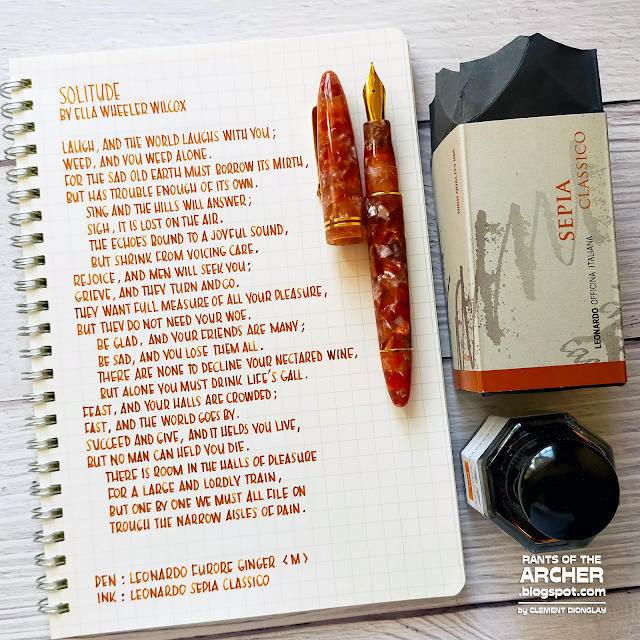 SOLITUDE
BY ELLA WHEELER WILCOX
LAUGH, AND THE WORLD LAUGHS WITH YOU;
WEED, AND YOU WEEP ALONE.
FOR THE SAD OLD EARTH MUST BORROW ITS MIRTH,
BUT HAS TROUBLE ENOUGH OF ITS OWN.
SING AND THE HILLS WILL ANSWER;
SIGH, IT IS LOST ON THE AIR.
THE ECHOES BOUND TO A JOYFUL SOUND,
BUT SHRINK FROM VOICING CARE.
REJOICE, AND MEN WILL SEEK YOU;
GRIEVE, AND THEY TURN AND GO.
THEY WANT FULL MEASURE OF ALL YOUR PLEASURE,
BUT THEY DO NOT NEED YOUR WOE.
BE GLAD, AND YOUR FRIENDS ARE MANY;
BE SAD, AND YOU LOSE THEM ALL.
THERE ARE NONE TO DECLINE YOUR NECTARED WINE,
BUT ALONE YOU MUST DRINK LIFE'S GALL.
FEAST, AND YOUR HALLS ARE CROWDED;
FAST, AND THE WORLD GOES BY.
SUCCEED AND GIVE, AND IT HELPS YOU LIVE,
BUT NO MAN CAN HELP YOU DIE.
THERE IS ROOM IN THE HALLS OF PLEASURE
FOR A LARGE AND LORDLY TRAIN,
BUT ONE BY ONE WE MUST ALL FILE ON
TROUGH THE NARROW AISLES OF PAIN.
PEN : LEONARDO FURORE GINGER <M>
INK : LEONARDO SEPIA CLASSICO
HIGH QUALITY INK
SEPIA
CLASSICO
LEONARDO OFFICINA ITALIANA
RANTS OF THE
ARCHER
.blogspot.com
by CLEMENT DIONGLAY